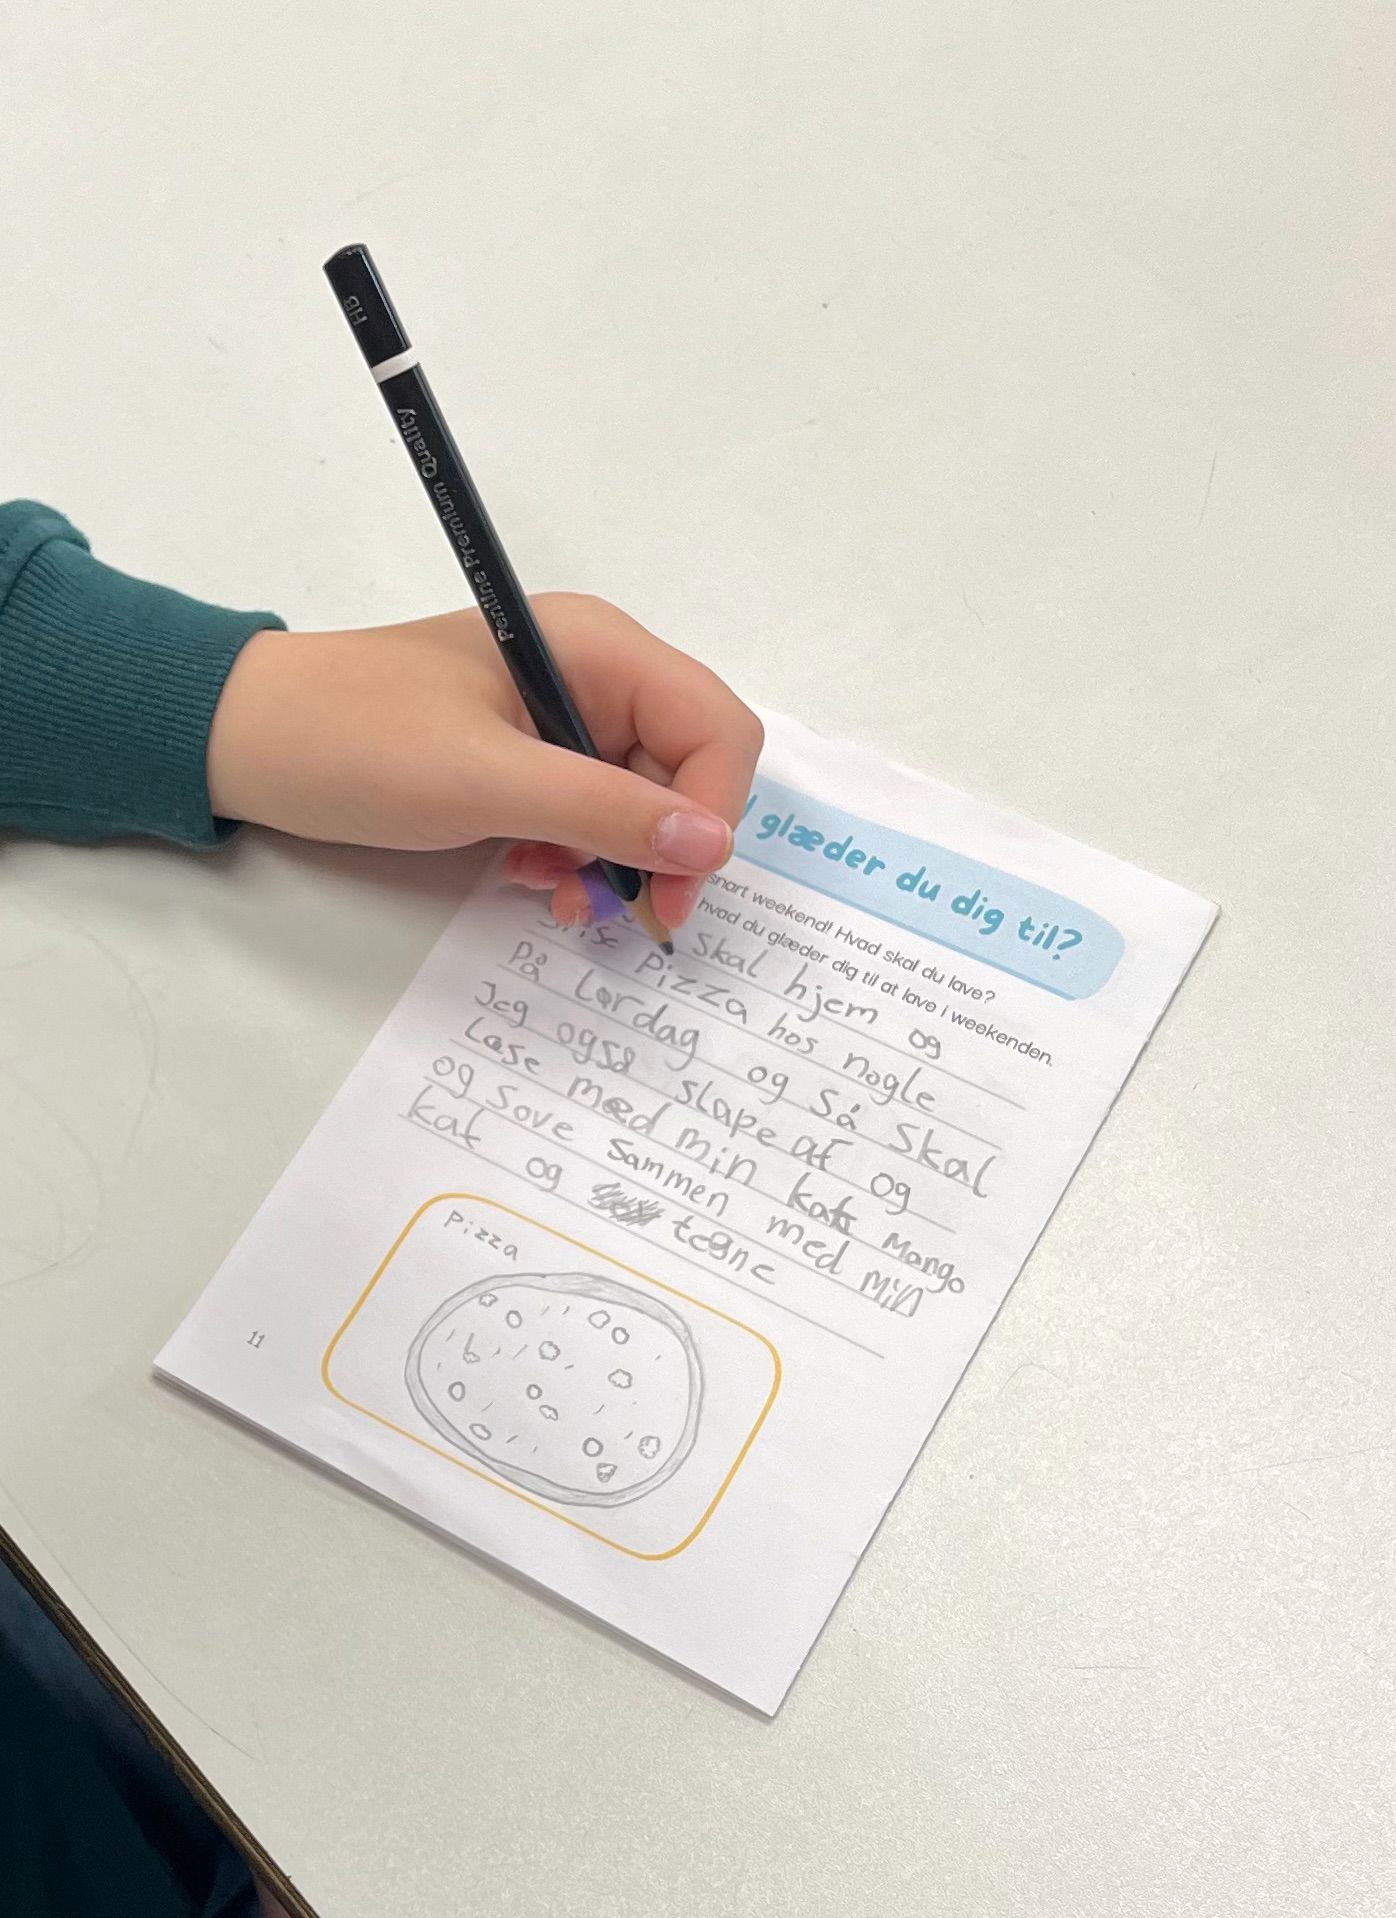 HB
Penline Premium Quality
glæder du dig til?
snart weekend! Hvad skal du lave?
hvad du glæder dig til at lave i weekenden.
skal hjem og
spise pizza hos nogle
på Lørdag og så skal
Jeg også slape af og
Læse mæd min kat Mango
og sove sammen med min
kat og tegne
pizza
11